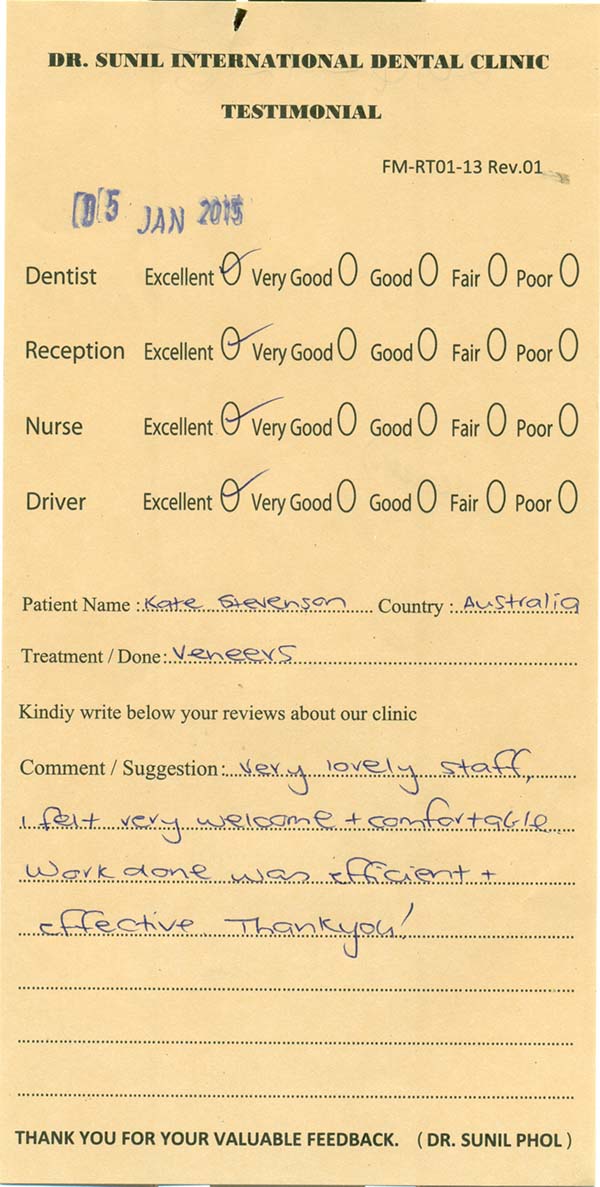 DR. SUNIL INTERNATIONAL DENTAL CLINIC
TESTIMONIAL
FM-RT01-13 Rev.01
05 JAN 2015
Dentist Excellent Very Good Good Fair Poor
Reception Excellent Very Good Good Fair Poor
Nurse Excellent Very Good Good Fair Poor
Driver Excellent Very Good Good Fair Poor
Patient Name : Kate Stevenson Country : Australia
Treatment / Done: Veneers
Kindiy write below your reviews about our clinic
Comment / Suggestion: Very lovely staff,
I felt very welcome + comfortable
Work done was efficient +
effective. Thankyou!
THANK YOU FOR YOUR VALUABLE FEEDBACK. ( DR. SUNIL PHOL )